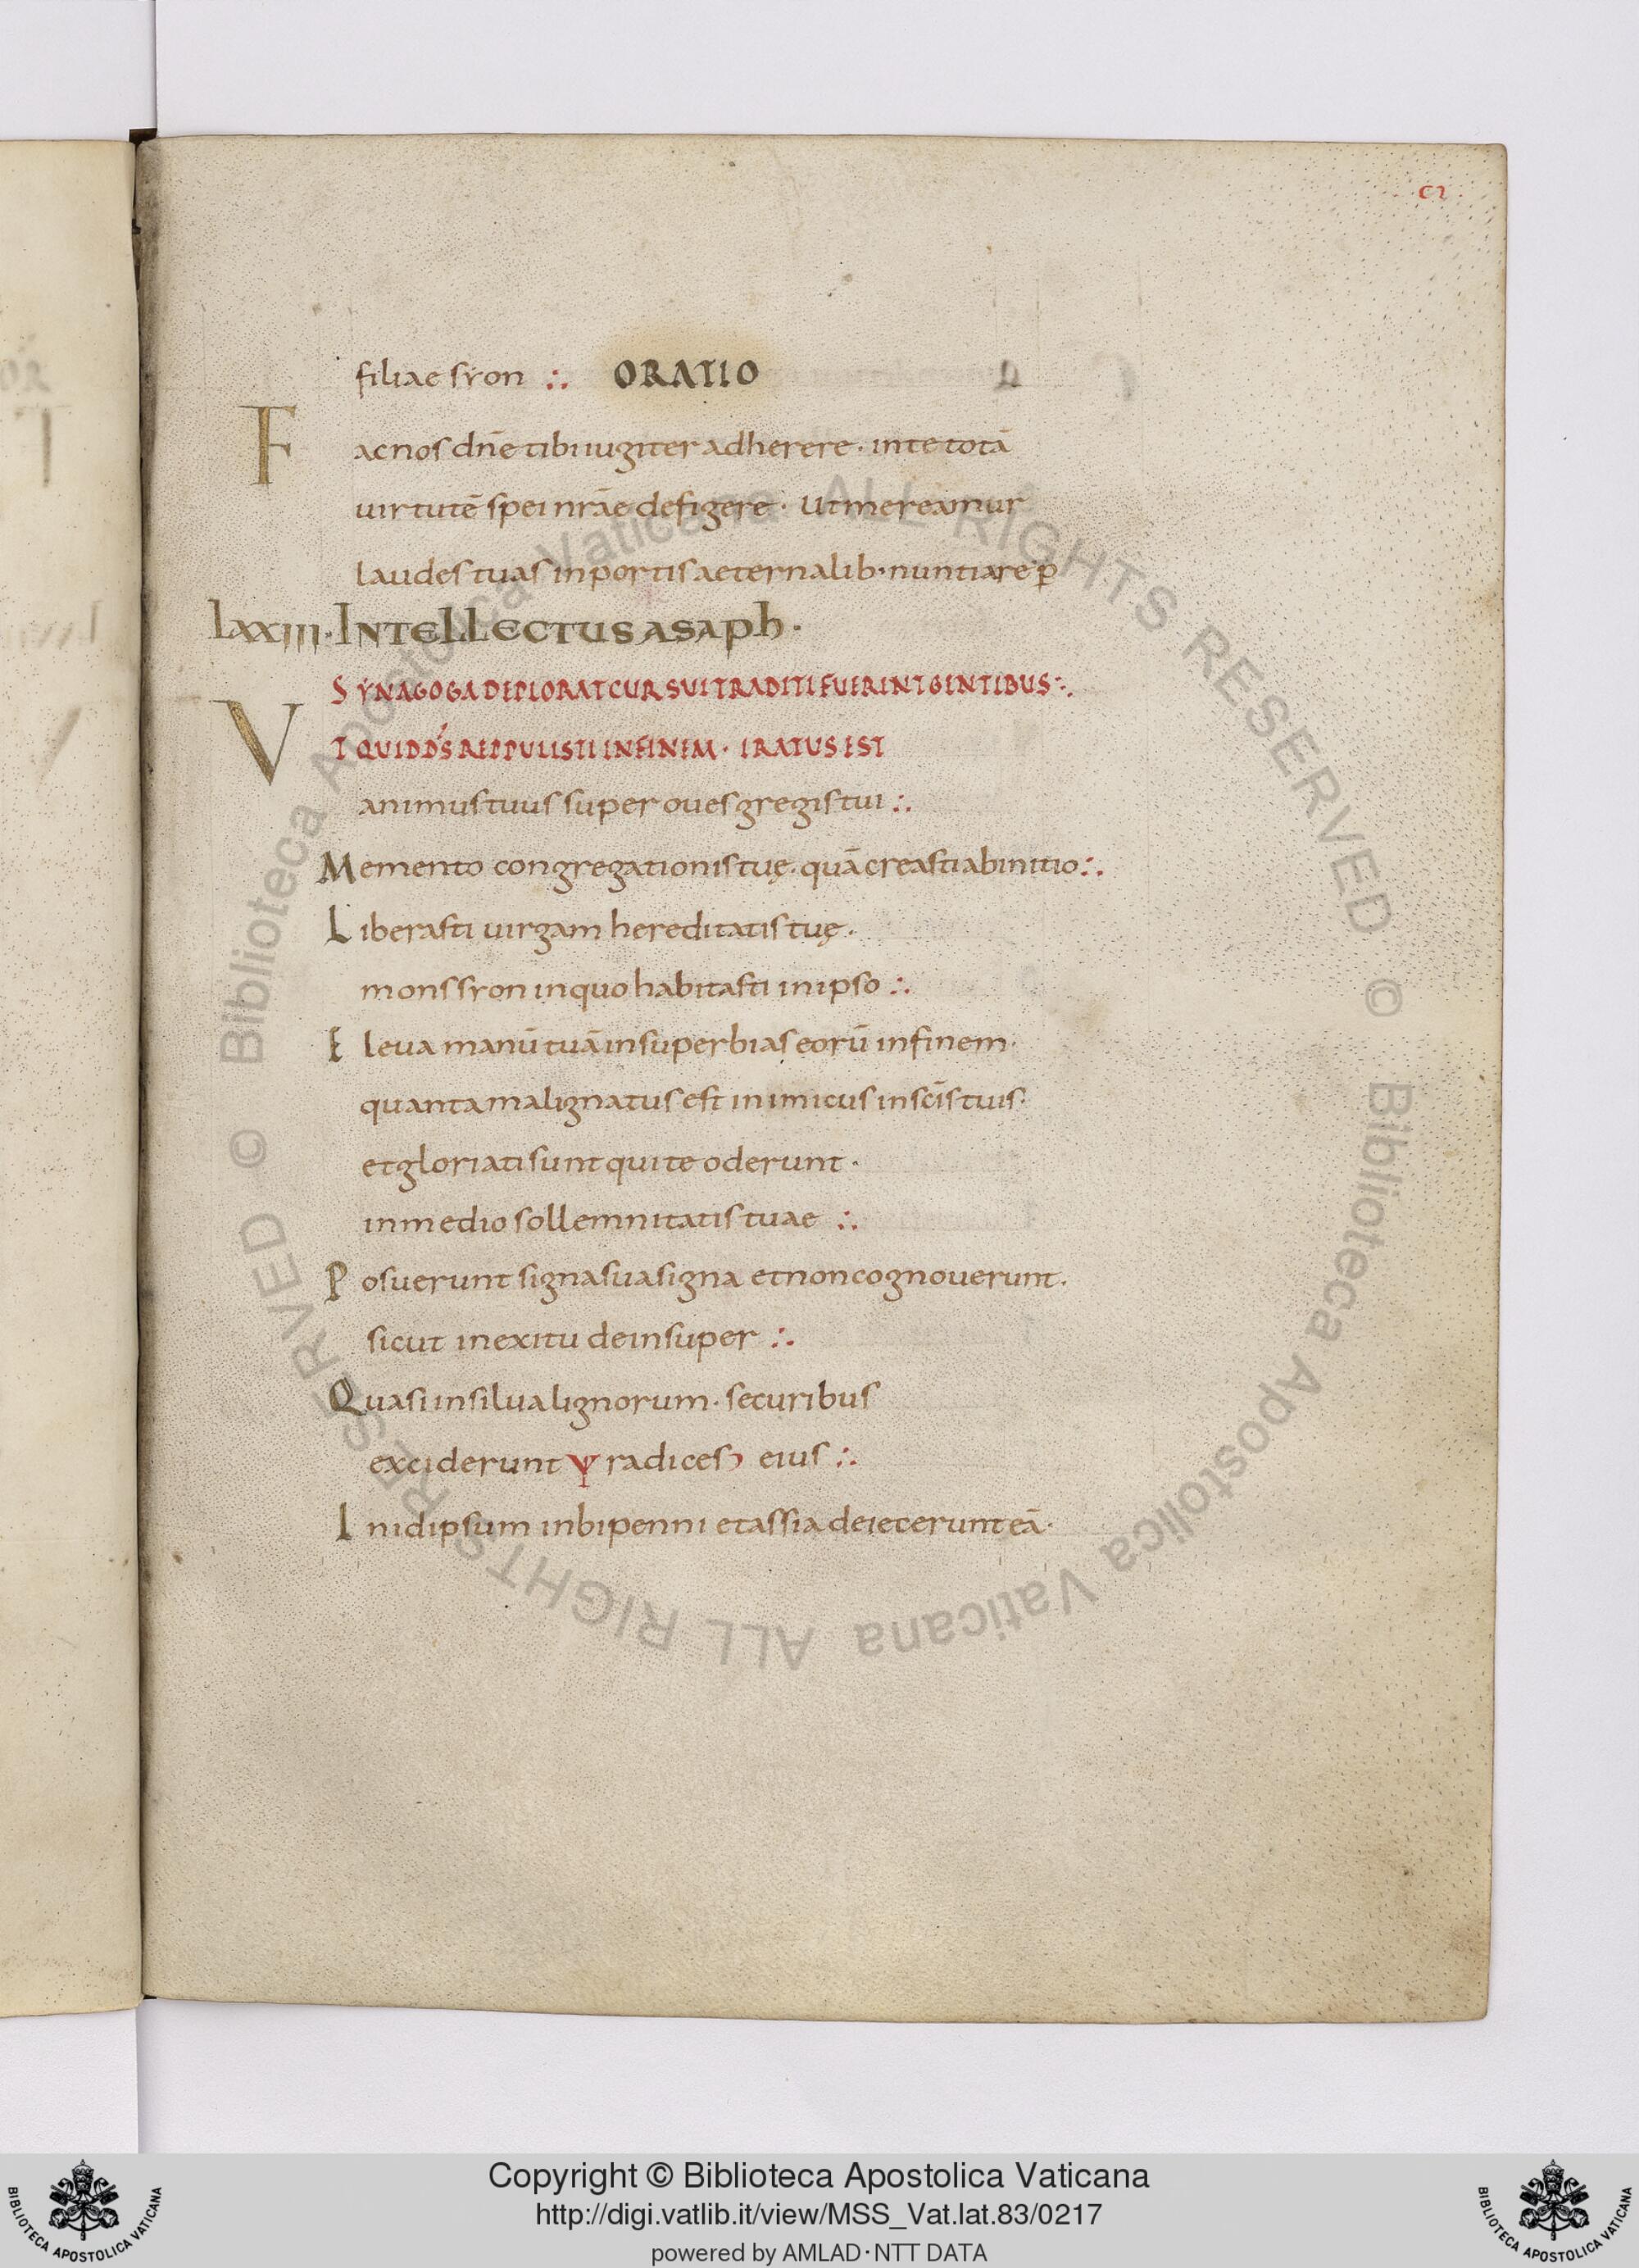 ci
filiae syon ∴ ORATIO
Fac nos dñe tibi iugiter adherere · in te totā
uirtutē spei nr̄ae defigere · Ut mereamur
laudes tuas in portis aeternalib· nuntiare p̄
lxxiii · INTELLECTUS ASAPH ·
SYNAGOGA DEPLORAT CUR SUI TRADITI FUERINT GENTIBUS ∴
VT QUID D̄S REPPULISTI IN FINEM · IRATUS EST
animus tuus super oues gregis tui ∴
Memento congregationis tuę · quā creasti ab initio ∴
Liberasti uirgam hereditatis tuę ·
mons syon in quo habitasti in ipso ∴
Eleua manū tuā in superbias eorū in finem ·
quanta malignatus est inimicus in sc̄is tuis ·
et gloriati sunt qui te oderunt ·
in medio sollemnitatis tuae ∴
Posuerunt signa sua signa et non cognouerunt ·
sicut in exitu de insuper ∴
Quasi in silua lignorum · securibus
exciderunt ұ radices eius ∴
In id ipsum in bipenni et assia deiecerunt eā ·
© Biblioteca Apostolica Vaticana ALL RIGHTS RESERVED © Biblioteca Apostolica Vaticana ALL RIGHTS RESERVED
Copyright © Biblioteca Apostolica Vaticana
http://digi.vatlib.it/view/MSS_Vat.lat.83/0217
powered by AMLAD·NTT DATA
BIBLIOTECA APOSTOLICA VATICANA
BIBLIOTECA APOSTOLICA VATICANA